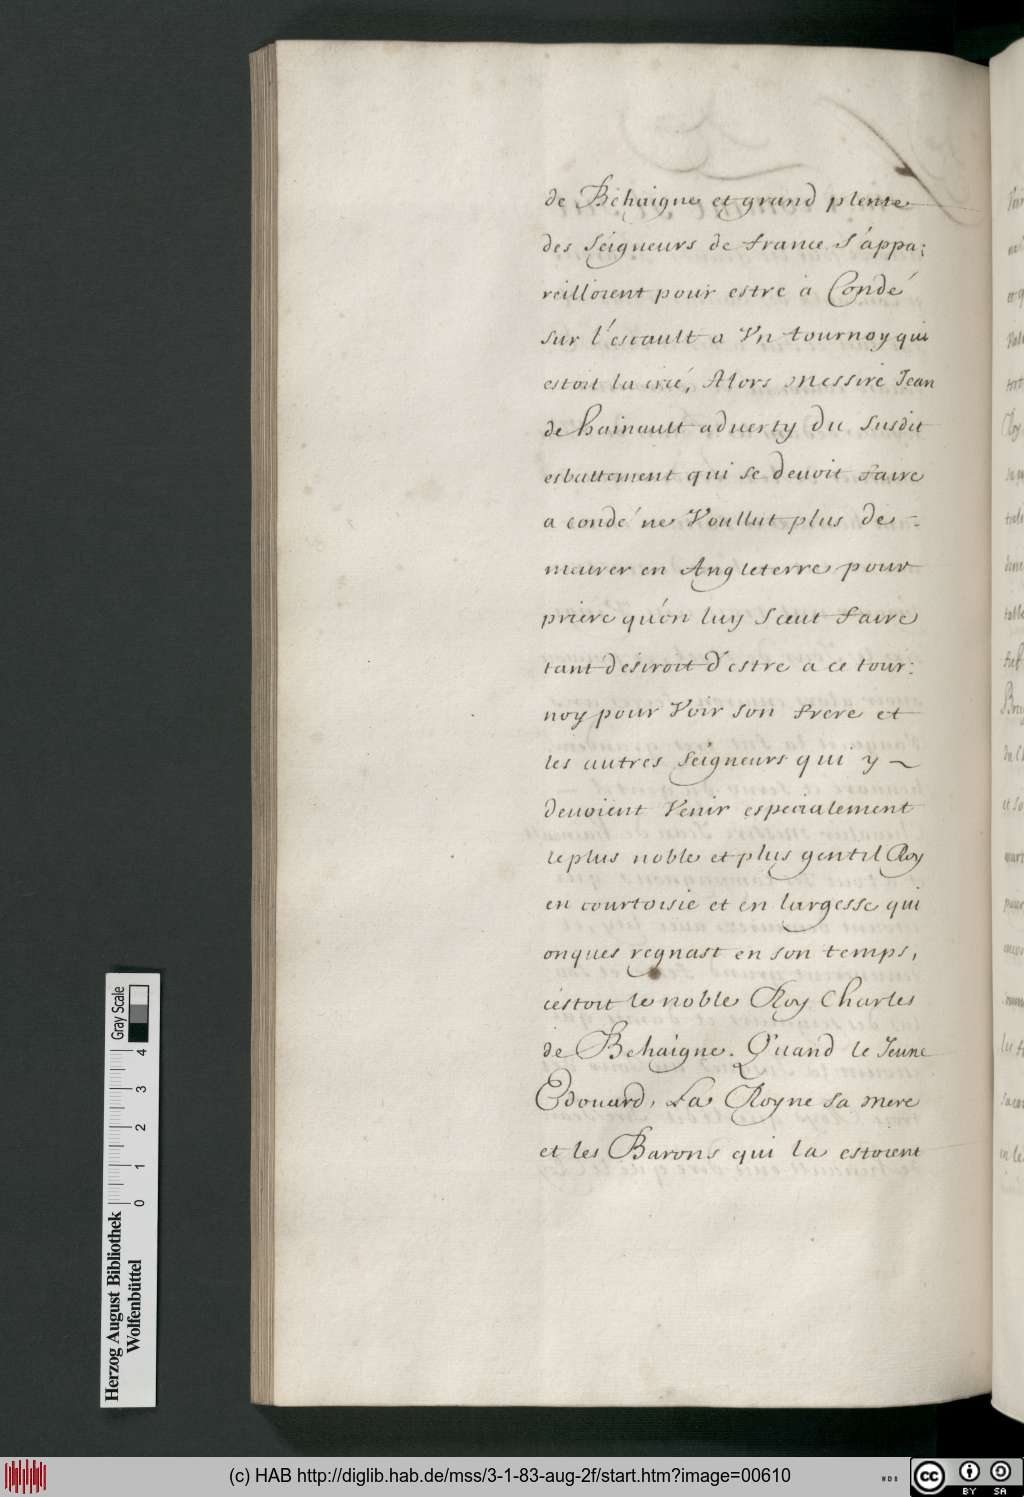 de Behaigne et grand plente
des Seigneurs de france S'appa:
reilloient pour estre a Condé
sur l'escault a Vn tournoy qui
estoit la crié, Alors messire Jean
de hainault aduerty du Susdit
esbattement qui se deuoit faire
a condé ne Voullut plus de -
meurer en Angleterre pour
priere qu'on luy Sceut faire
tant desiroit d'estre a ce tour:
noy pour Voir son frere et
les autres Seigneurs qui y ~
deuoient Venir especialement
le plus noble et plus gentil Roy
en courtoisie et en largesse qui
onques regnast en son temps,
c'estoit le noble Roy Charles
de Behaigne. Quand le Jeune
Edouard, La Royne sa mere
et les Barons qui la estoient
Gray Scale
4 3 2 1 0
Herzog August Bibliothek
Wolfenbüttel
(c) HAB http://diglib.hab.de/mss/3-1-83-aug-2f/start.htm?image=00610
BY SA